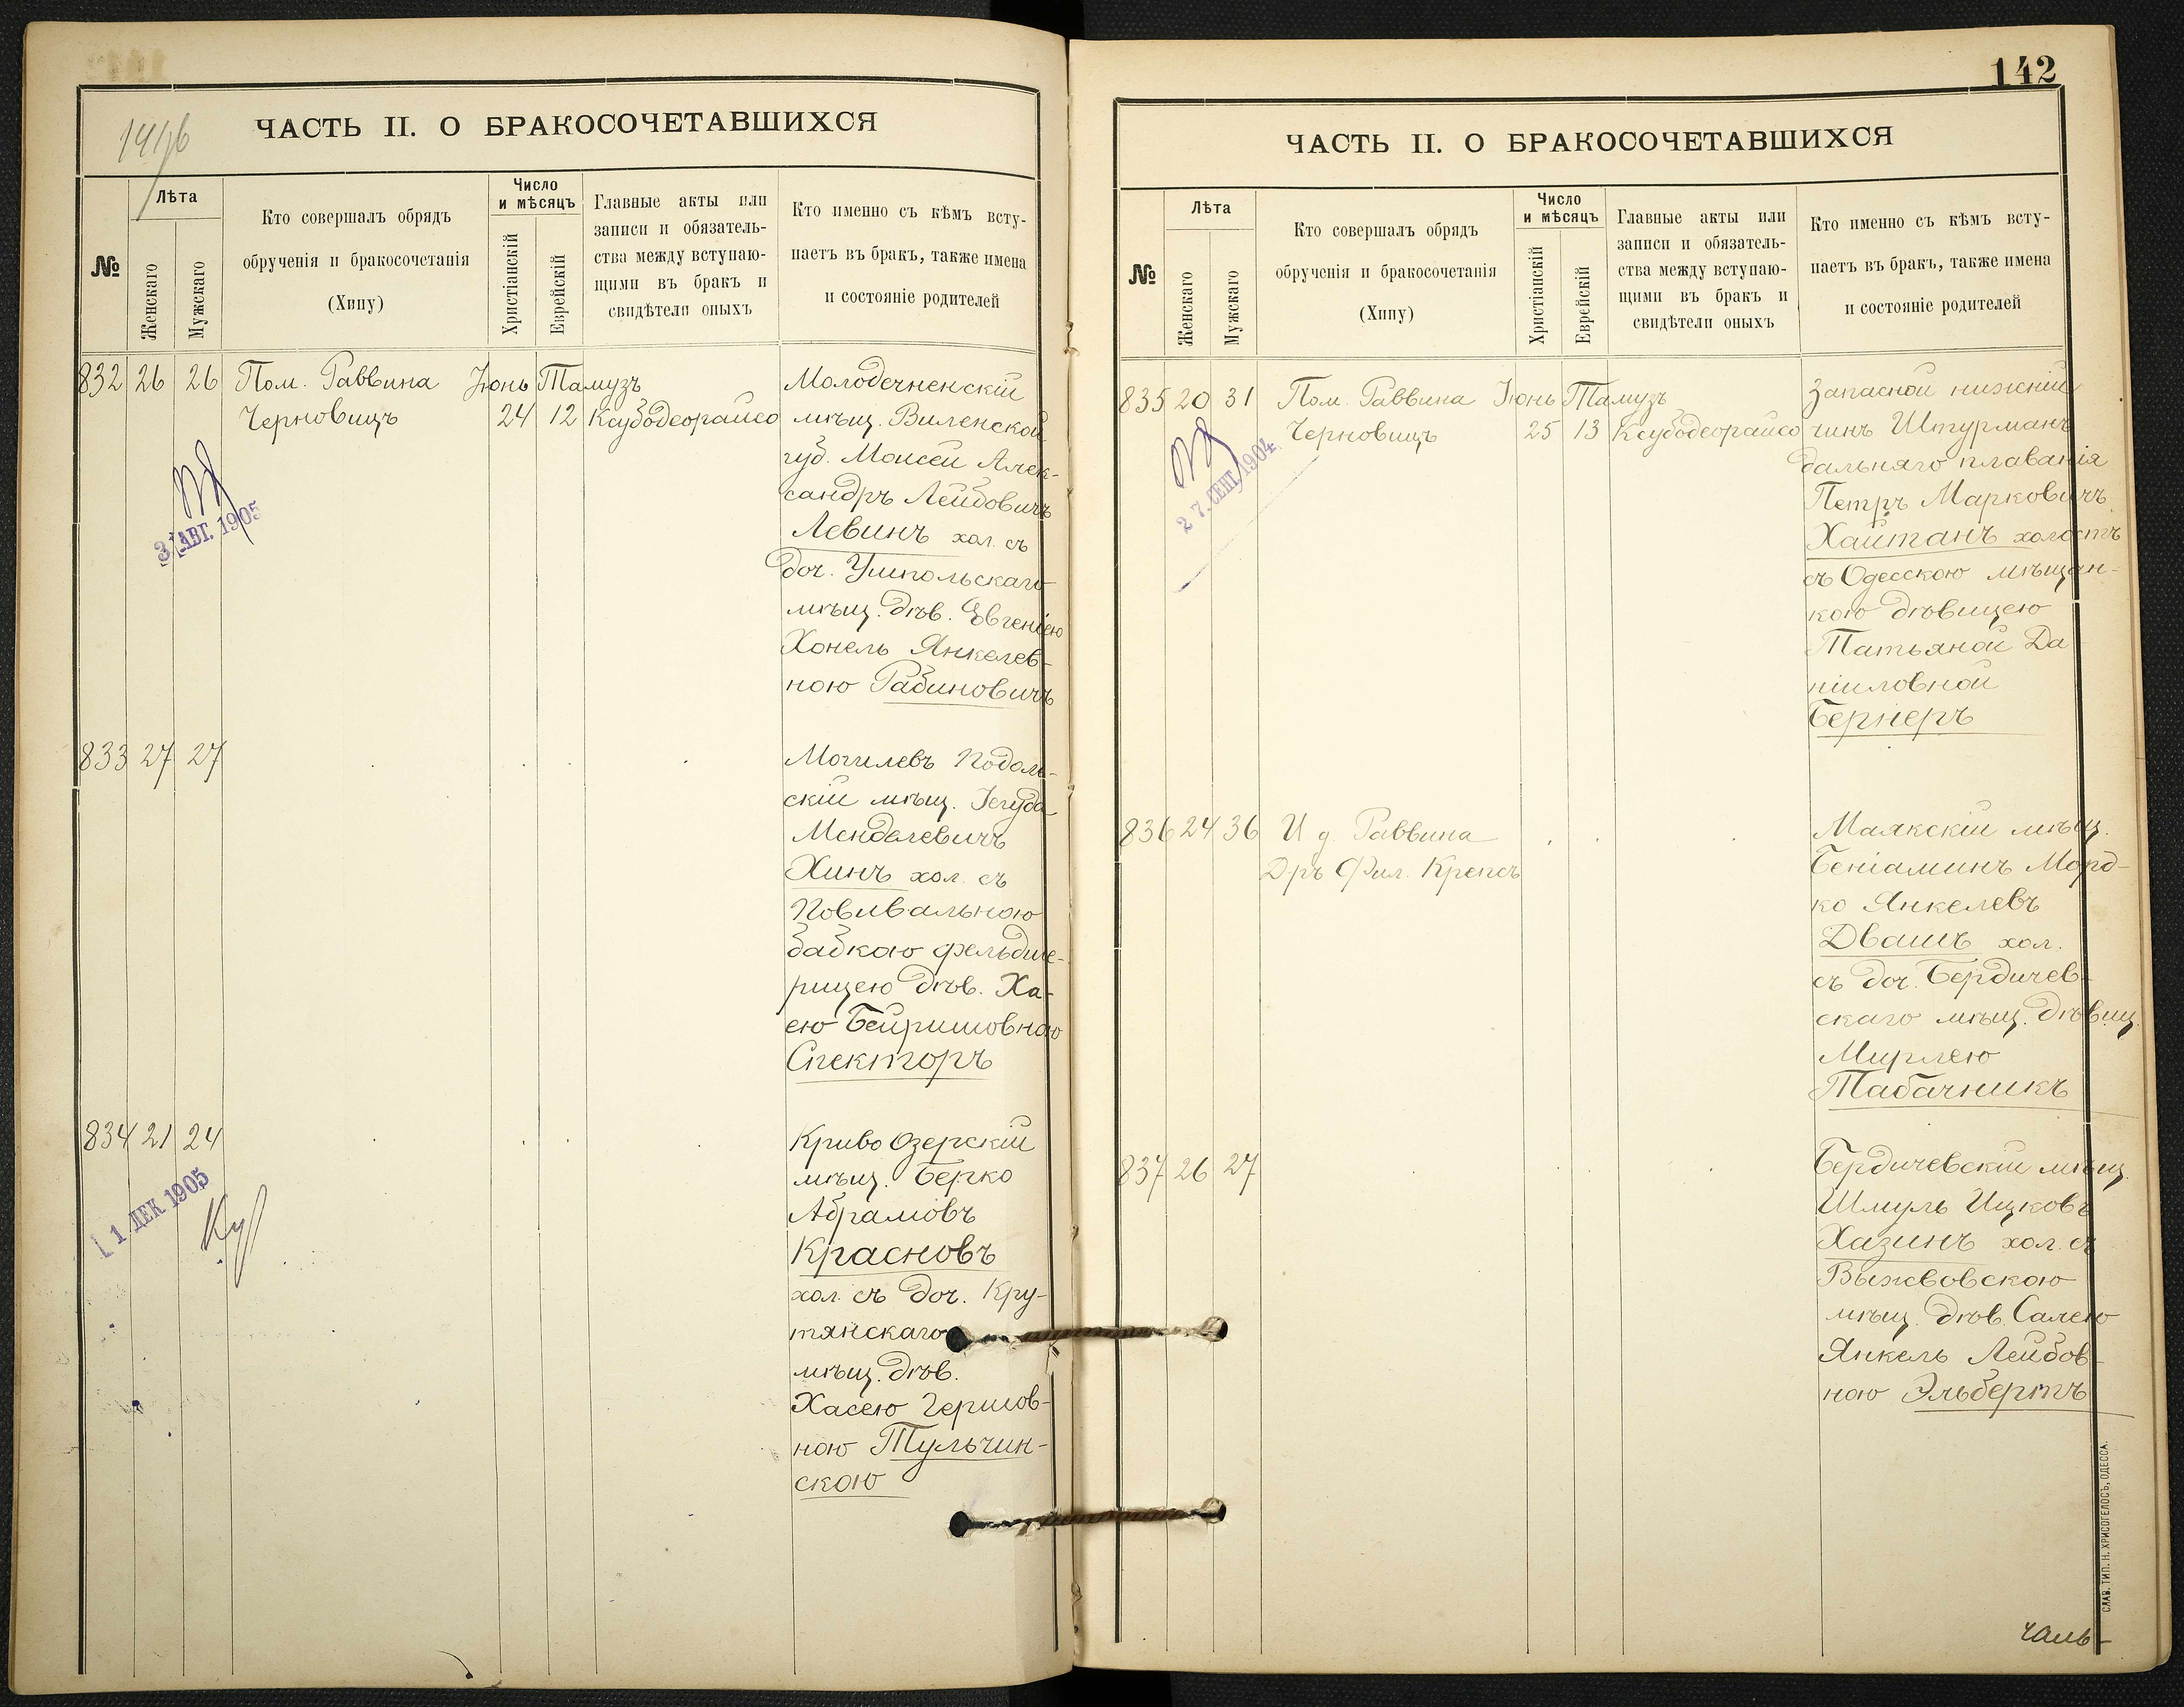 1416
ЧАСТЬ II. О БРАКОСОЧЕТАВШИХСЯ
№
Лѣта
Женскаго
Мужскаго
Кто совершалъ обрядъ
обрученія и бракосочетанія
(Хипу)
Число
и мѣсяцъ
Христіанскій
Еврейскій
Главные акты или
записи и обязатель-
ства между вступаю-
щими въ бракъ и
свидѣтели оныхъ
Кто именно съ кѣмъ всту-
паетъ въ бракъ, также имена
и состояніе родителей
832 26 26 Пом. Раввина Іюнь Тамузъ
Черновицъ 24 12 Ксубодеорайсо
3 АВГ. 1905
Молодечненскій
мѣщ. Виленской
губ. Моисей Алек-
сандръ Лейбовичъ
Левинъ хол. съ
доч. Ушпольскаго
мѣщ. дѣв. Евгеніею
Хонель Янкелев-
ною Рабиновичъ
833 27 27
Могилевъ Подоль-
скій мѣщ. Іегуда
Менделевичъ
Хинъ хол. съ
Повивальною
бабкою фельдше-
рицею дѣв. Ха-
ею Бейришовною
Спекторъ
834 21 24
1 ДЕК 1905
Криво Озерскій
мѣщ. Берко
Абрамовъ
Красновъ
хол. съ доч. Кру-
тянскаго
мѣщ. дѣв.
Хасею Гершов-
ною Тульчин-
скою
142
ЧАСТЬ II. О БРАКОСОЧЕТАВШИХСЯ
№
Лѣта
Женскаго
Мужскаго
Кто совершалъ обрядъ
обрученія и бракосочетанія
(Хипу)
Число
и мѣсяцъ
Христіанскій
Еврейскій
Главные акты или
записи и обязатель-
ства между вступаю-
щими въ бракъ и
свидѣтели оныхъ
Кто именно съ кѣмъ всту-
паетъ въ бракъ, также имена
и состояніе родителей
835 20 31 Пом. Раввина Іюнь Тамузъ
Черновицъ 25 13 Ксубодеорайсо
27. СЕНТ. 1904.
Запасной нижній
чинъ Штурманъ
дальняго плаванія
Петръ Марковичъ
Хайтанъ холостъ
съ Одесскою мѣщан-
кою дѣвицею
Татьяной Да
ніиловной
Бернеръ
836 24 36 И д. Раввина
Дръ Фил. Крепсъ
Маякскій мѣщ.
Беніаминъ Морд-
ко Янкелевъ
Двашъ хол.
съ доч. Бердичев-
скаго мѣщ. дѣвиц.
Мирлею
Табачникъ
837 26 27
Бердичевскій мѣщ
Шмуль Ицковъ
Хазинъ хол. съ
Выжвовскою
мѣщ. дѣв. Салею
Янкель Лейбов-
ною Эльбертъ
СЛАВ. ТИП. Н. ХРИСОГЕЛОСЪ, ОДЕССА.